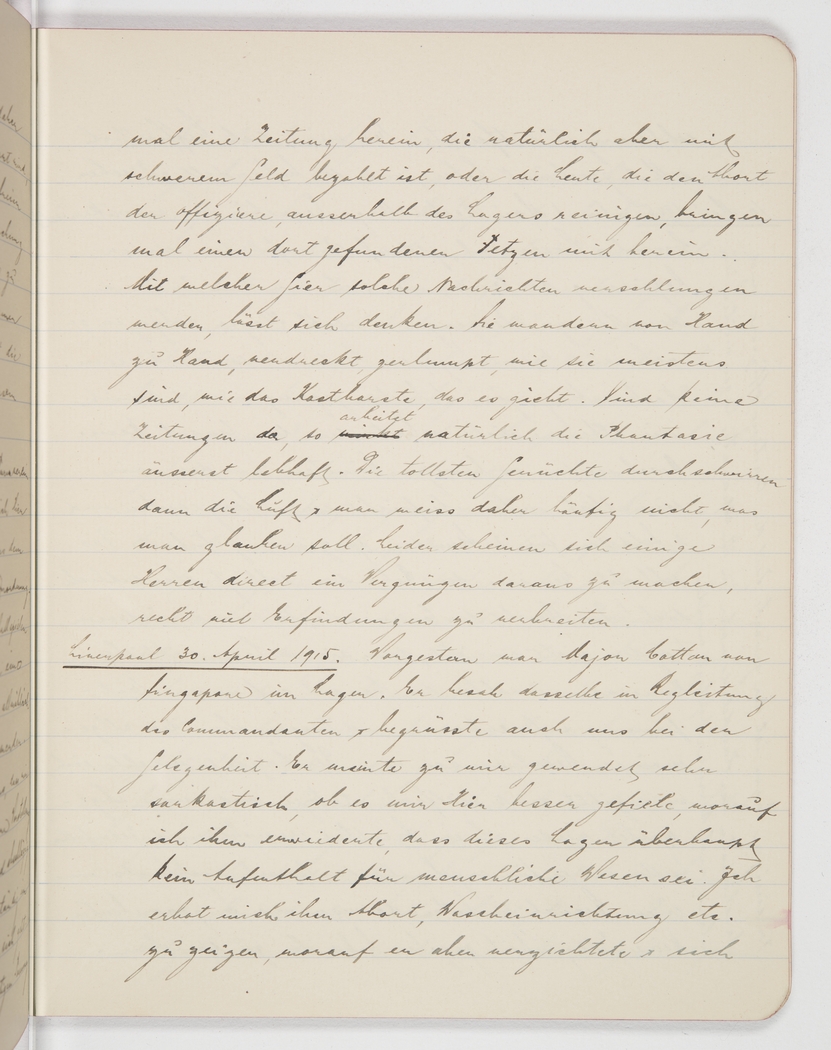 mal eine Zeitung herein, die natürlich aber mit
schwerem Geld bezahlt ist, oder die Leute, die den Abort
der Offiziere, ausserhalb des Lagers reinigen, bringen
mal einen dort gefundenen Fetzen mit herein.
Mit welcher Gier solche Nachrichten verschlungen
werden, lässt sich denken. Sie wandern von Hand
zu Hand, verdreckt, zerlumpt, wie sie meistens
sind, wie das Kostbarste, das es giebt. Sind keine
arbeitet
Zeitungen da, so natürlich die Phantasie
äusserst lebhaft. Die tollsten Gerüchte durchschwirren
dann die Luft & man weiss daher häufig nicht, was
man glauben soll. Leider scheinen sich einige
Herren direct ein Vergnügen daraus zu machen,
recht viel Erfindungen zu verbreiten.
Liverpool 30. April 1915. Vorgestern war Major Cotton von
Singapore im Lager. Er besah dasselbe in Begleitung
des Commandanten & begrüsste auch uns bei der
Gelegenheit. Er meinte zu mir gewendet sehr
sarkastisch, ob es mir hier besser gefiele, worauf
ich ihm erwiederte, dass dieses Lager überhaupt
kein Aufenthalt für menschliche Wesen sei. Ich
erbot mich ihm Abort, Wascheinrichtung etc.
zu zeigen, worauf er aber verzichtete & sich